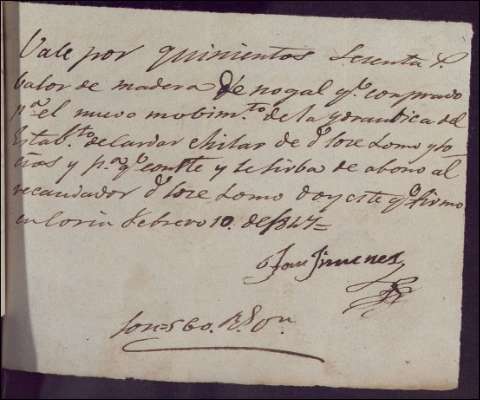 Vale por quinientos Sesenta r.s
balor de madera de nogal q.e comprado
p.a el nuevo mobim.to de la ydraulica del
stab.to de Cardar e hilar de d.n Jose Lomo y so-
cios y p.a q.e conste y le sirba de abono al
recaudador d.n Jose Lomo doy este q.e firmo
en Coria Febrero 10. de 1847=
Jose Jimenez
Son=560. R.s on.